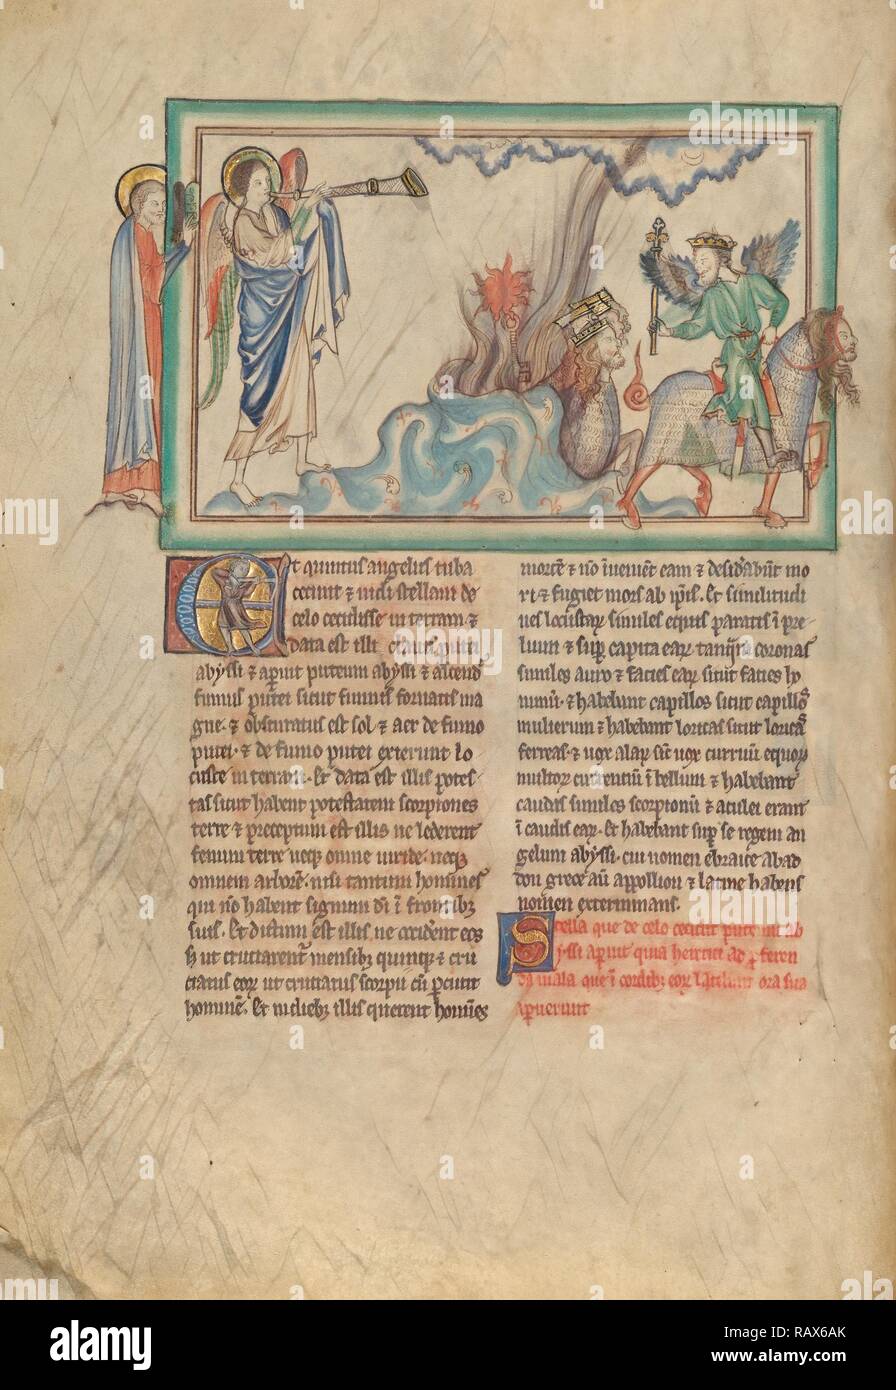 Et quintus angelus tuba
cecinit ⁊ uidi stellam de
celo cecidisse in terram ⁊
data est illi clauis putei
abyssi ⁊ aperuit puteum abyssi ⁊ ascend
fumus putei sicut fumus fornacis ma
gne · ⁊ obscuratus est sol ⁊ aer de fumo
putei · ⁊ de fumo putei exierunt lo
custe in terram · Et data est illis potes
tas sicut habent potestatem scorpiones
terre ⁊ preceptum est illis ne lederent
fenum terre neqꝫ omne uiride · neqꝫ
omnem arborē · nisi tantum homines
qui nō habent signum dī ī frontibꝫ
suis · Et dictum est illis ne occiderent eos
ut cruciarent mensibꝫ quinqꝫ ⁊ cru
ciatus eoꝝ ut cruciatus scorpii cū pcutit
hominē · Et in diebꝫ illis querent homīes
mortē ⁊ nō īuenīent eam ⁊ desidabūnt mo
ri ⁊ fugiet mors ab ipīs · Et similitudi
nes locustaꝝ similes equis paratis ī pre
lium ⁊ sup capita eaꝝ tanqm coronas
similes auro ⁊ facies eaꝝ sicut facies ho
minū · ⁊ habebant capillos sicut capillos
mulierum ⁊ habebant loricas sicut loricas
ferreas · ⁊ uox alaꝝ sīc uox curruū equoꝝ
multoꝝ currentiū ī bellum ⁊ habebant
caudas similes scorpionū ⁊ aculei erant
ī caudis eaꝝ · Et habebant sup se regem an
gelum abyssi · cui nomen ebraice abad
don grece aū appollion ⁊ latine habens
nomen exterminans ·
Stella que de celo cecidit puteum ab
yssi aperuit quia heretici ad pferen
da mala que ī cordibꝫ eoꝝ latebant ora sua
aperuerunt
alamy
alamy stock photo
RAX6AK
www.alamy.com